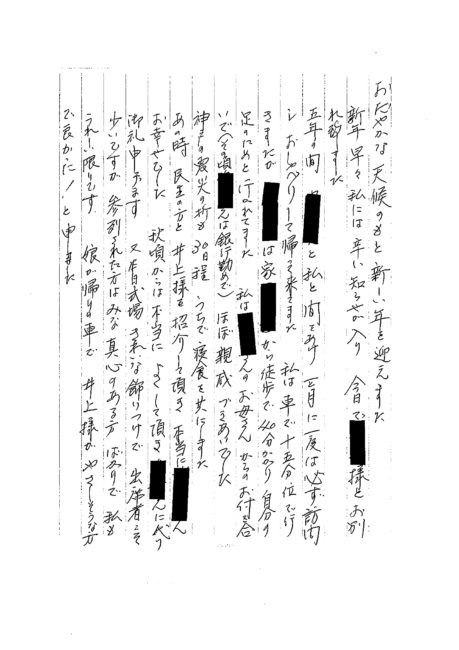 おだやかな天候のもと新しい年を迎えました
新年早々私には辛い知らせが入り 今日で 様とお別
れ致しました
五年の間 と私と間をあけ 一月に一度は必ず訪問
し おしゃべりして帰って来ました 私は車で十五分位で行
きましたが は家 から徒歩で40分かかり 自分の
足のためと行かれてました 私は さんのお母さんからのお付合
いで(その頃 さんは銀行勤めで) ほぼ親戚づきあいでした
神戸の震災の折も30日程 うちで寝食を共にしました
あの時 民生の方と井上様を紹介して頂き 本当に ん
お幸せでした 秋頃からは本当に よくして頂き んに代り
御礼申します 又本日式場 きれいな飾りつけで 出席者こそ
少いですが 参列された方はみな真心のある方ばかりで 私も
うれしい限りです 娘が帰りの車で 井上様がやさしそうな方
で良かった!と申しました